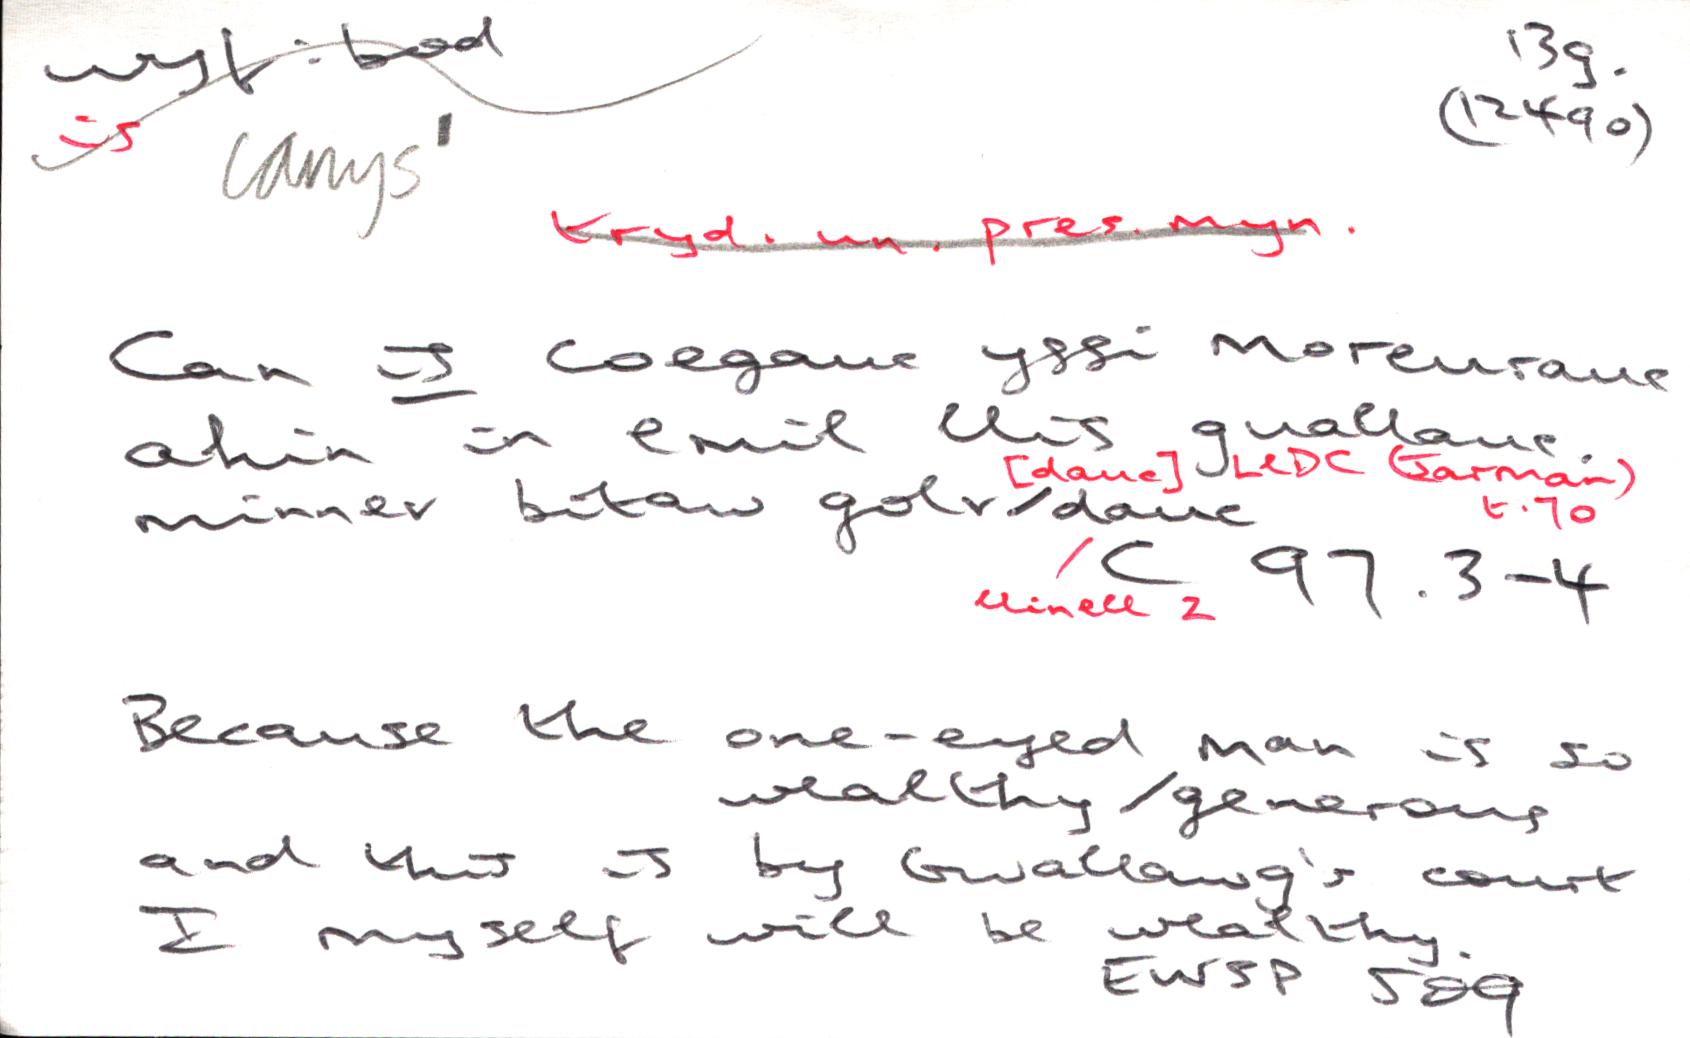 wyf : bod
13g.
(1249o)
is
canys¹
tryd. un. pres. myn.
Can is coegauc yssi moreurauc
ahin in emil llis guallauc.
[dauc] LlDC (Jarman)
minner bitaw golv/dauc t.70
/C 97.3-4
llinell 2
Because the one-eyed man is so
wealthy/generous
and this is by Gwallawg's court
I myself will be wealthy.
EWSP 509